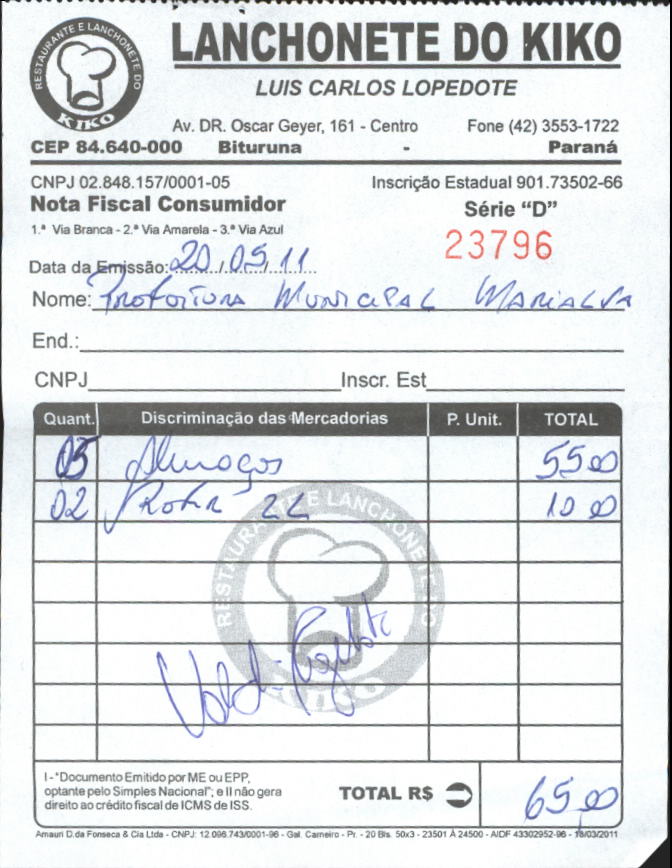 RESTAURANTE E LANCHONETE DO
KIKO
LANCHONETE DO KIKO
LUIS CARLOS LOPEDOTE
Av. DR. Oscar Geyer, 161 - Centro Fone (42) 3553-1722
CEP 84.640-000 Bituruna - Paraná
CNPJ 02.848.157/0001-05 Inscrição Estadual 901.73502-66
Nota Fiscal Consumidor Série "D"
1.ª Via Branca - 2.ª Via Amarela - 3.ª Via Azul
23796
Data da Emissão: 20/05/11
Nome: Prefeitura Municipal Marialva
End.:
CNPJ Inscr. Est
Quant. Discriminação das Mercadorias P. Unit. TOTAL
05 Almoços 55,00
02 2L 10,00
RESTAURANTE E LANCHONETE DO
KIKO
I - "Documento Emitido por ME ou EPP,
optante pelo Simples Nacional"; e II não gera
direito ao crédito fiscal de ICMS de ISS.
TOTAL R$ 65,00
Amauri D.da Fonseca & Cia Ltda - CNPJ: 12.096.743/0001-96 - Gal. Carneiro - Pr. - 20 Bls. 50x3 - 23501 À 24500 - AIDF 43302952-96 - 18/03/2011